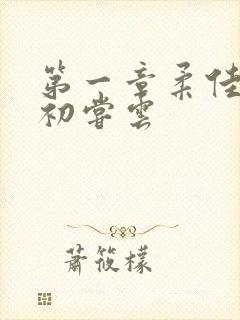 第一章柔佳
初尝云
萧筱檬